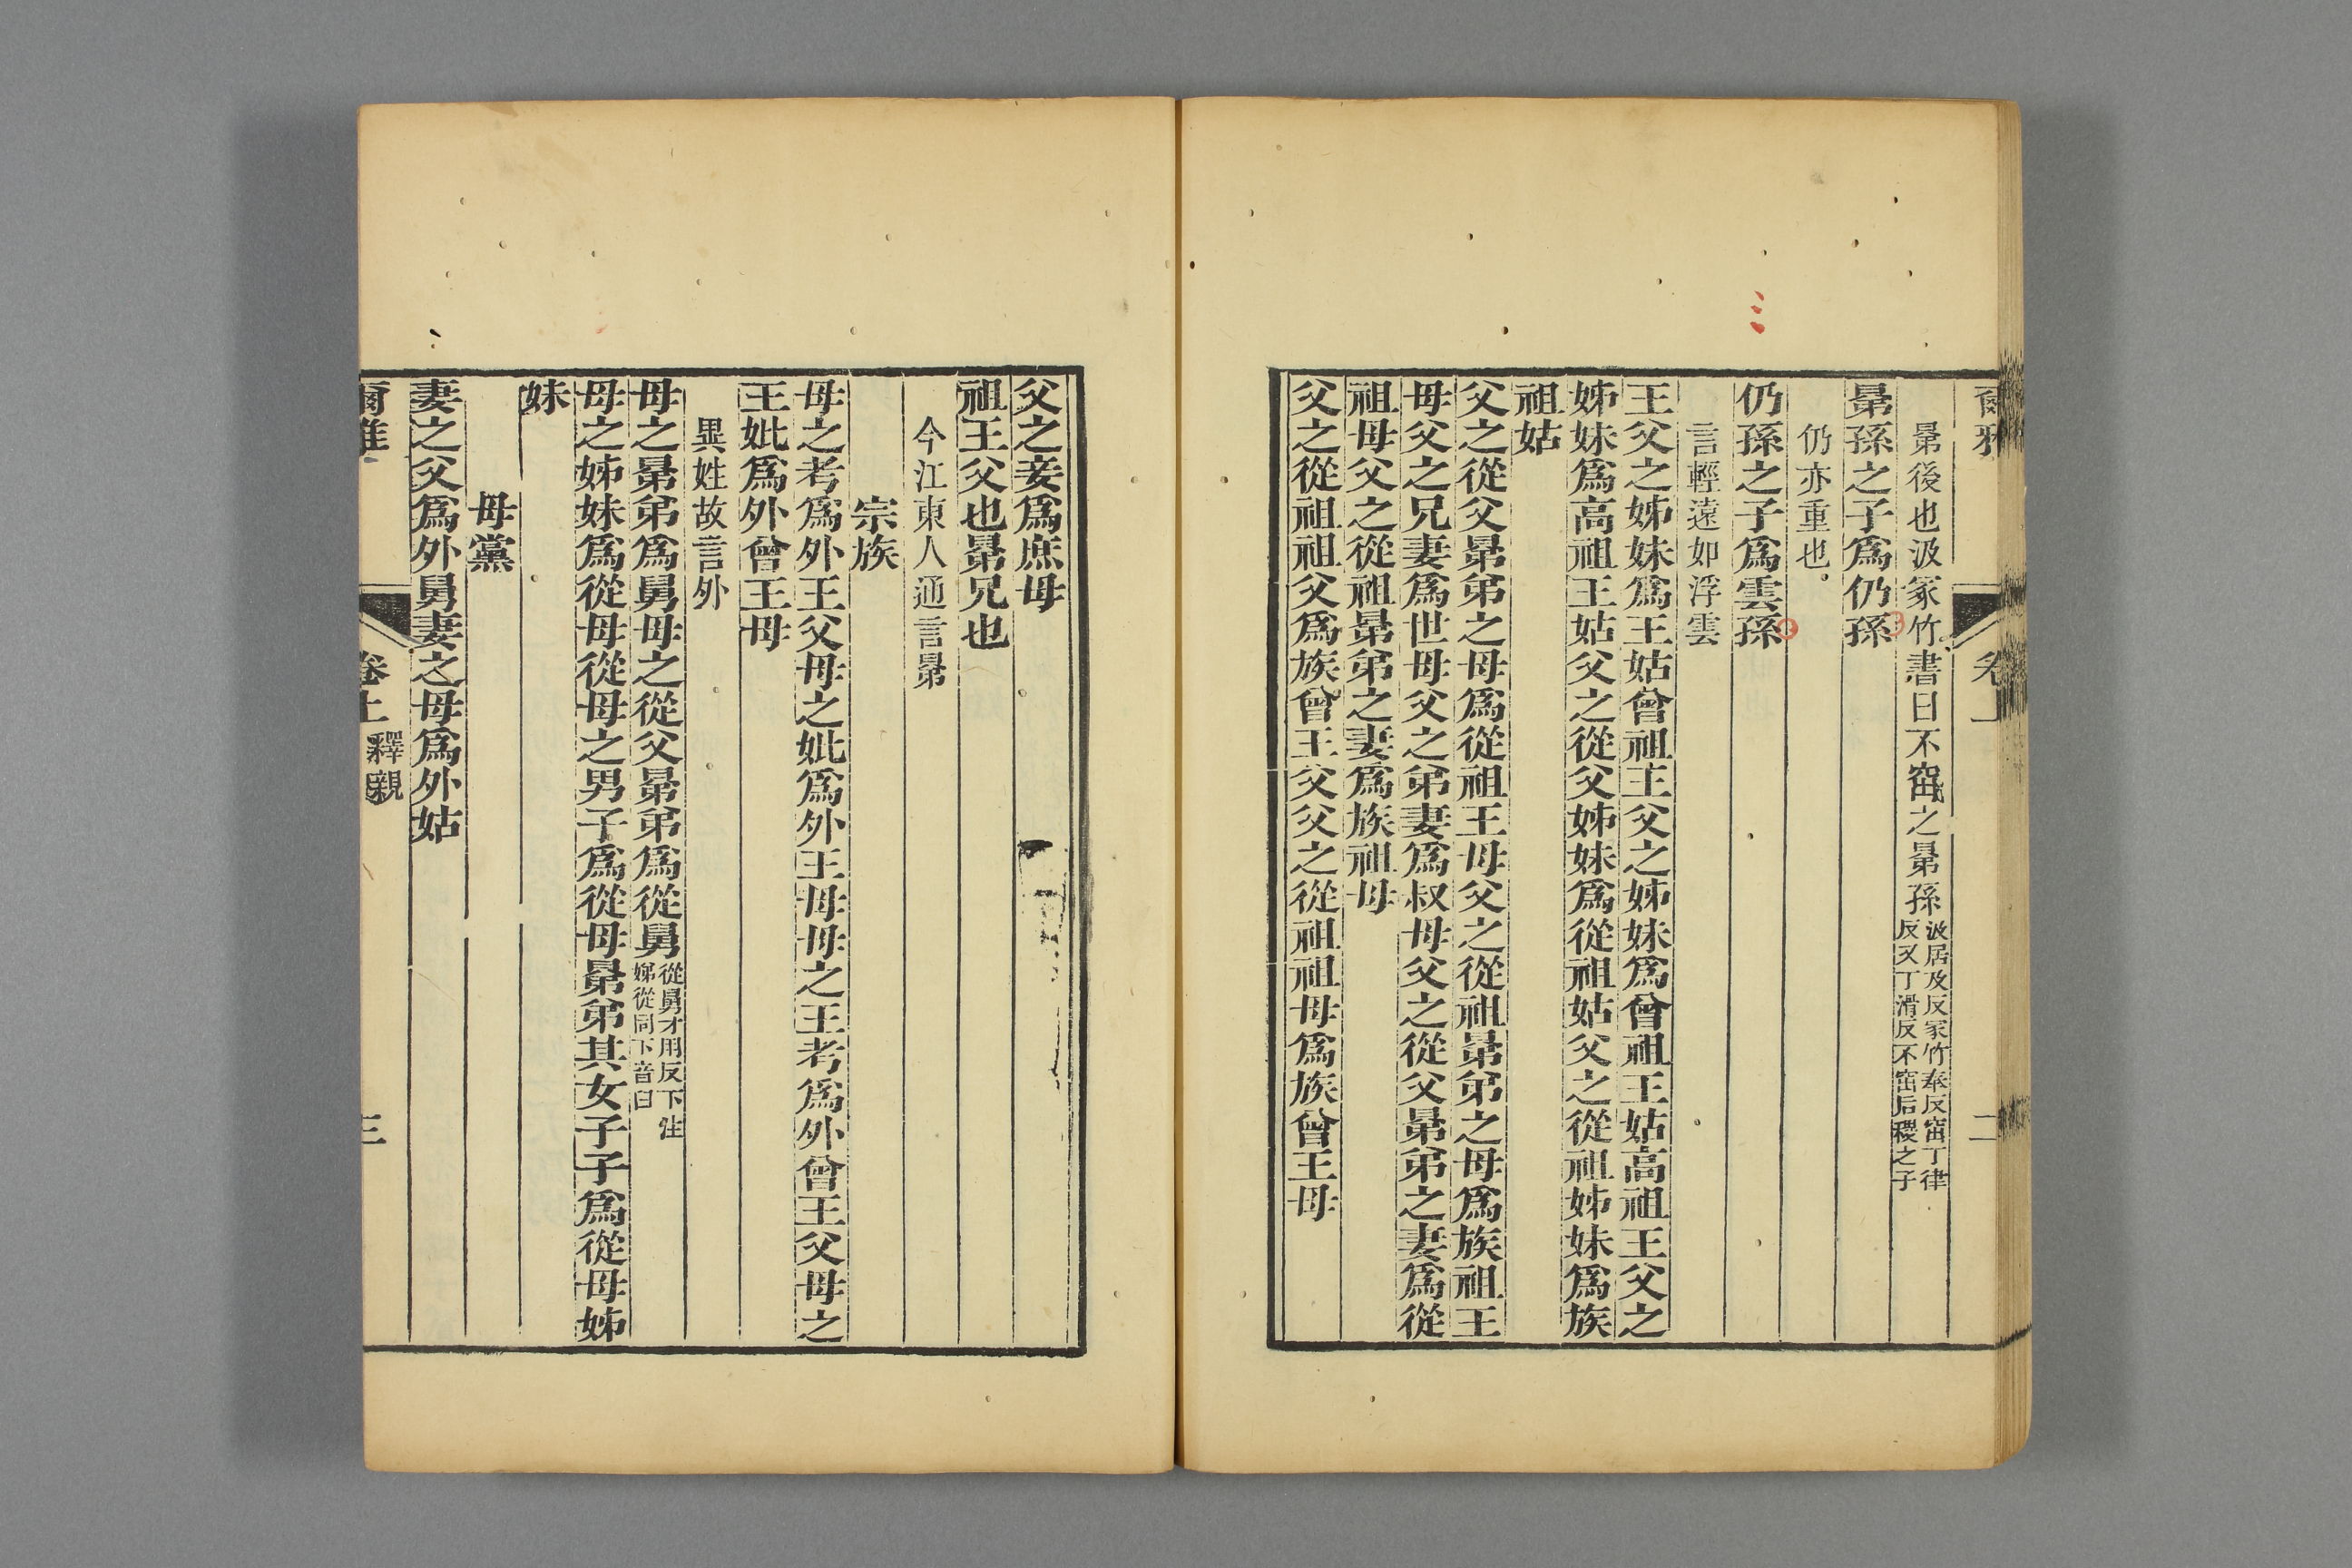 爾雅 卷上 二
晜後也汲冢竹書曰不窋之晜孫汲居及反冢竹奉反窋丁律
反又丁滑反不窋后稷之子
晜孫之子爲仍孫
仍亦重也
仍孫之子爲雲孫
言輕遠如浮雲
王父之姊妹爲王姑曾祖王父之姊妹爲曾祖王姑高祖王父之
姊妹爲高祖王姑父之從父姊妹爲從祖姑父之從祖姊妹爲族
祖姑
父之從父晜弟之母爲從祖王母父之從祖晜弟之母爲族祖王
母父之兄妻爲世母父之弟妻爲叔母父之從父晜弟之妻爲從
祖母父之從祖晜弟之妻爲族祖母
父之從祖祖父爲族曾王父父之從祖祖母爲族曾王母
父之妾爲庶母
祖王父也晜兄也
今江東人通言晜
宗族
母之考爲外王父母之妣爲外王母母之王考爲外曾王父母之
王妣爲外曾王母
異姓故言外
母之晜弟爲舅母之從父晜弟爲從舅從舅才用反下注
娣從同下音曰
母之姊妹爲從母從母之男子爲從母晜弟其女子子爲從母姊
妹
母黨
妻之父爲外舅妻之母爲外姑
爾雅 卷上 釋親 三